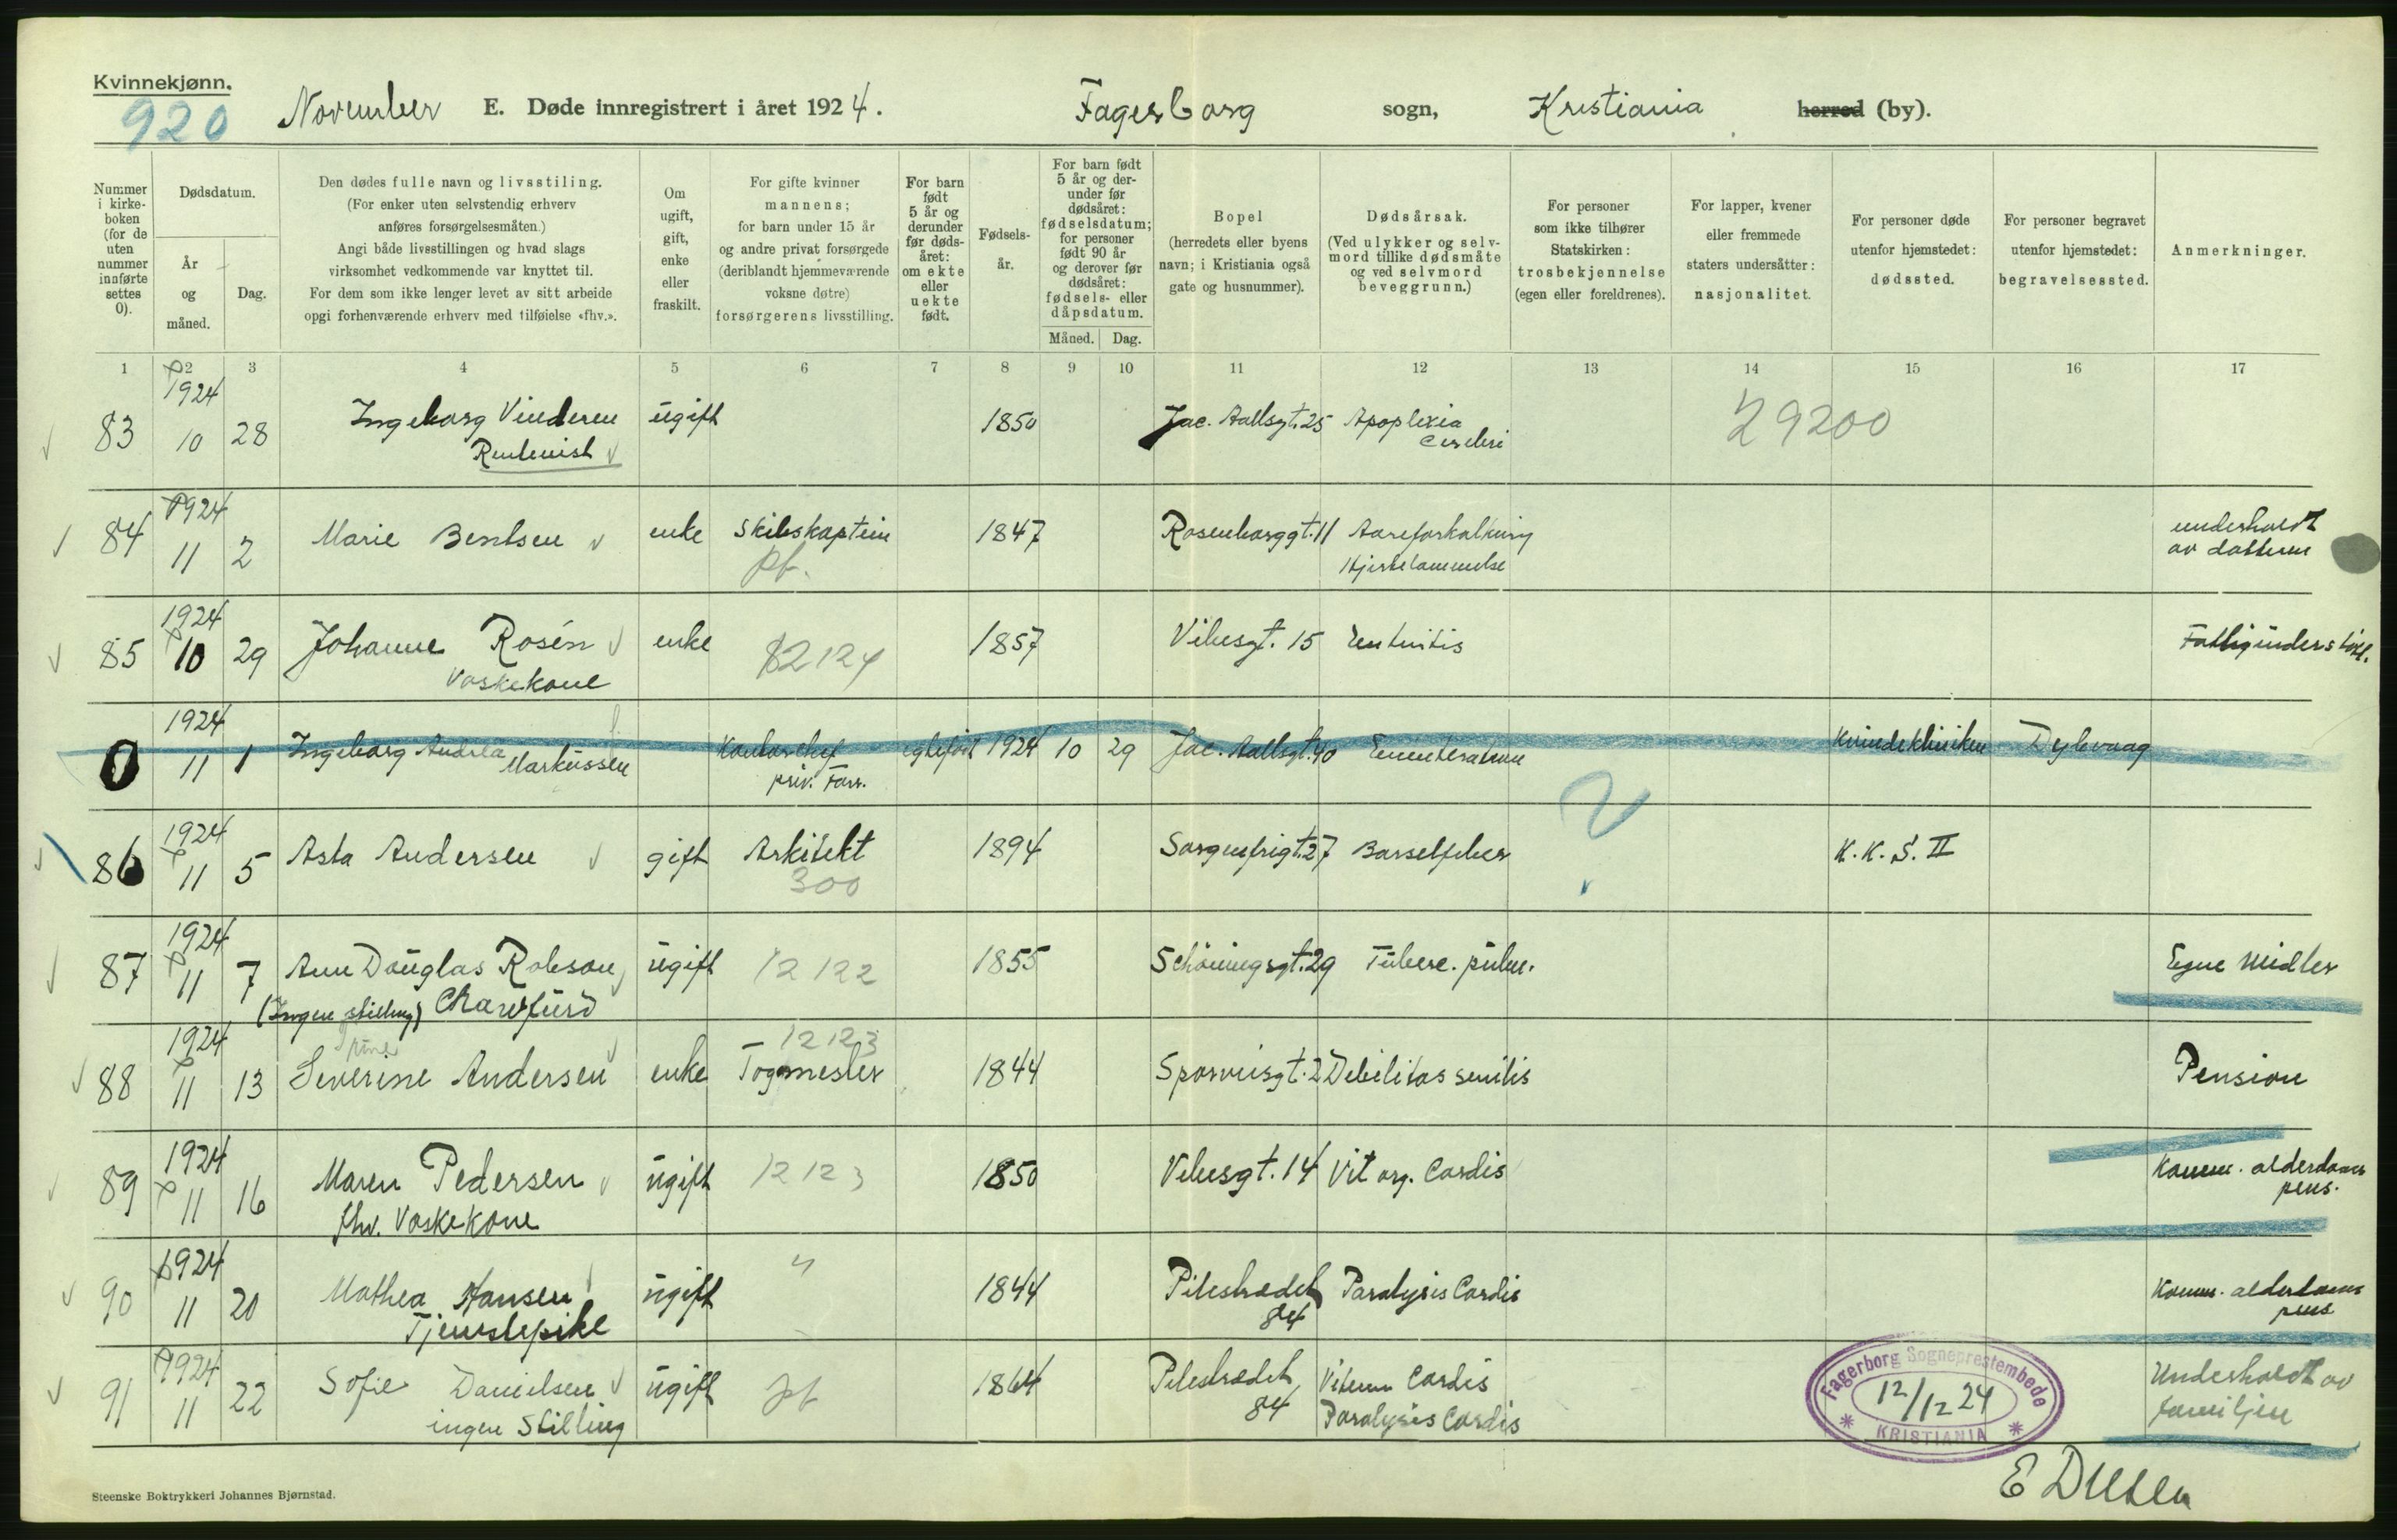 Kvinnekjønn.
920
November E. Døde innregistrert i året 1924. Fagerborg sogn, Kristiania herred (by).
Nummer i kirke-boken (for de uten nummer innførte settes 0).
Dødsdatum.
År og måned.
Dag.
Den dødes fulle navn og livsstiling.
(For enker uten selvstendig erhverv
anføres forsørgelsesmåten.)
Angi både livsstillingen og hvad slags
virksomhet vedkommende var knyttet til.
For dem som ikke lenger levet av sitt arbeide
opgi forhenværende erhverv med tilføielse «fhv.».
Om ugift, gift, enke eller fraskilt.
For gifte kvinner
mannens;
for barn under 15 år
og andre privat forsørgede
(deriblandt hjemmeværende
voksne døtre)
forsørgerens livsstilling.
For barn født 5 år og derunder før døds-året: om ekte eller uekte født.
Fødsels-år.
For barn født
5 år og der-
under før
dødsåret:
fødselsdatum;
for personer
født 90 år
og derover før
dødsåret:
fødsels- eller
dåpsdatum.
Måned. Dag.
Bopel
(herredets eller byens
navn; i Kristiania også
gate og husnummer).
Dødsårsak.
(Ved ulykker og selv-
mord tillike dødsmåte
og ved selvmord
beveggrunn.)
For personer
som ikke tilhører
Statskirken:
trosbekjennelse
(egen eller foreldrenes).
For lapper, kvener
eller fremmede
staters undersåtter:
nasjonalitet.
For personer døde
utenfor hjemstedet:
dødssted.
For personer begravet
utenfor hjemstedet:
begravelsessted.
Anmerkninger.
1 2 3 4 5 6 7 8 9 10 11 12 13 14 15 16 17
1924
83 10 28 Ingeborg Vinderen ugift 1850 Jac. Aallsgt. 25 Apoplexia 29200
Rentenist cerebri
1924
84 11 2 Marie Bentsen enke Skibskaptein 1847 Rosenborggt. 11 Aareforkalkning underholdt
pt. Hjertelammelse av datteren
1924
85 10 29 Johanne Rosén enke 82124 1857 Vibesgt. 15 Enteritis Fattigunderstøt.
Vaskekone
1924
0 11 1 Ingeborg Andrea Markussen Kontorchef egtefødt 1924 10 29 Jac. Aallsgt. 40 Kvindekliniken Dybvaag
priv. Forr.
1924
86 11 5 Asta Andersen gift Arkitekt 1894 Sorgenfrigt. 27 Barselfeber K.K.S. II
300
1924
87 11 7 Ann Douglas Robson ugift 12122 1855 Schöningsgt. 29 Tuberc. pulm. Egne midler
(Ingen stilling)
1924 12123
88 11 13 Severine Andersen enke Togmester 1844 Sporveisgt. 2 Debilitas senilis Pension
1924
89 11 16 Maren Pedersen ugift 12123 1850 Vibesgt. 14 Vit org. Cordis Komm. alderdoms
fhv. Vaskekone pens.
1924
90 11 20 Mathea Hansen ugift " 1844 Pilestrædet Paralysis Cordis Komm. alderdoms
Tjenestepike 84 pens
1924
91 11 22 Sofie Danielsen ugift pt 1864 Pilestrædet Vitium Cordis Underholdt av
ingen Stilling 84 Paralysis Cordis familjen
Fagerborg Sogneprestembede
12/12 24
KRISTIANIA
Steenske Boktrykkeri Johannes Bjørnstad.